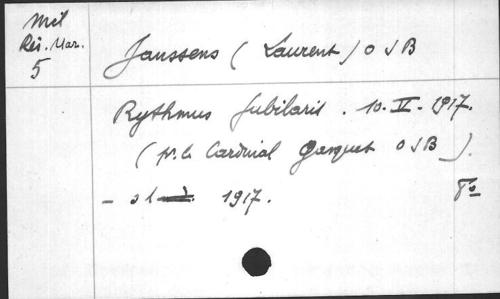 Mél
Rés. Mar.
5
Janssens (Laurent) O S B
Rythmus Jubilaris. 10. II. 1917.
(pr. le Cardinal Gasquet O S B).
- s l 1917. 8°